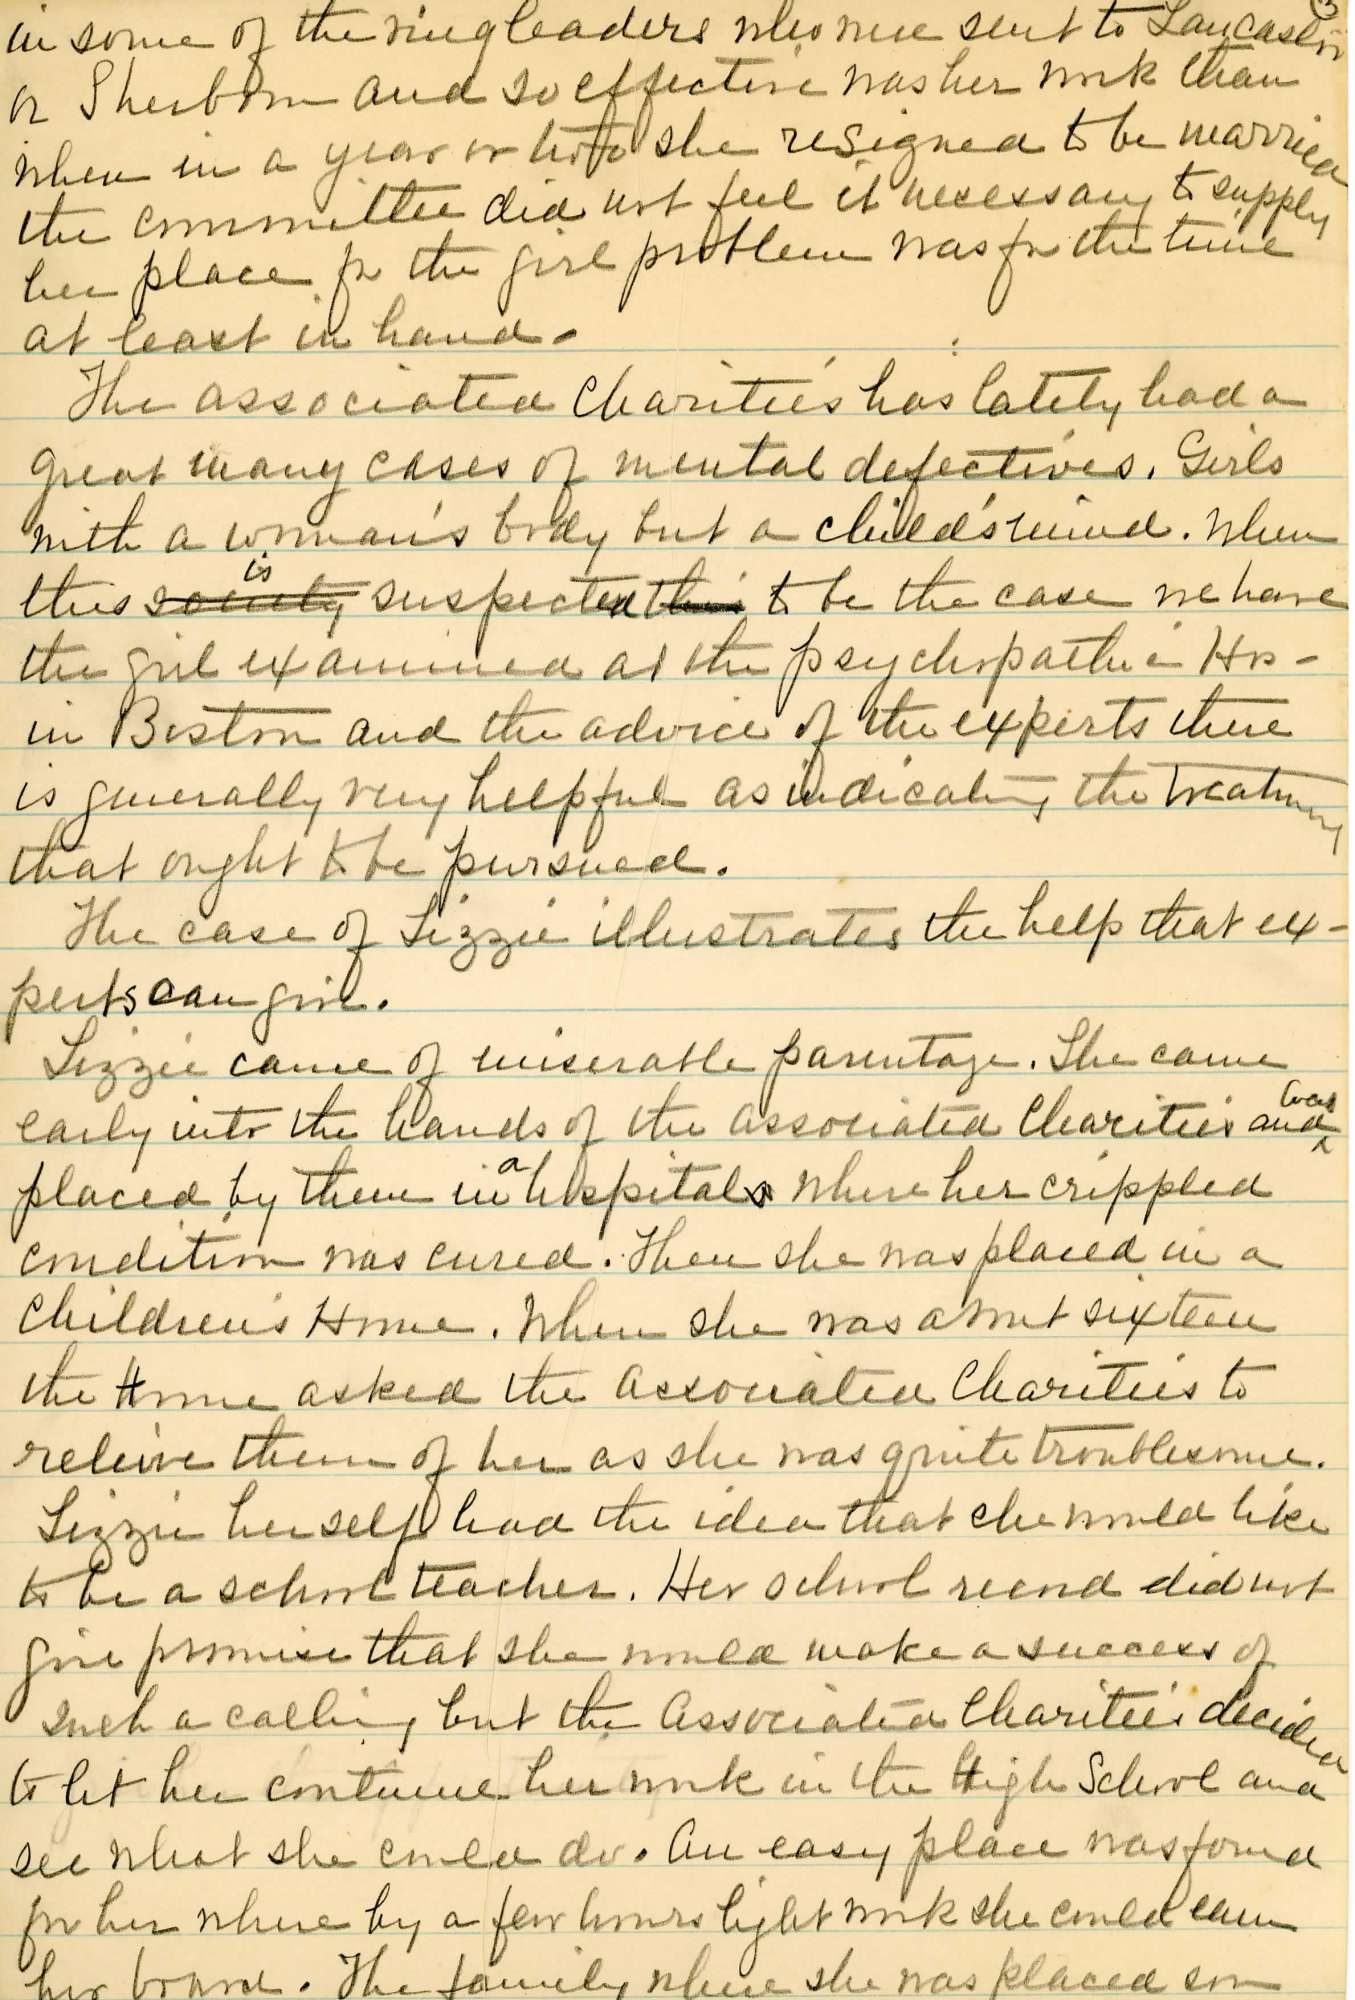 in some of the ringleaders who were sent to Lancaster
or Sherborn and so effective was her work than
when in a year or two she resigned to be married
the committee did not feel it necessary to supply
her place for the girl problem was for the time
at least in hand -
The associated Charities has lately had a
great many cases of mental defectives. Girls
with a woman's body but a child's mind. When
this society is suspected this to be the case we have
the girl examined at the psychopathic Hos -
in Boston and the advice of the experts there
is generally very helpful as indicating the treatment
that ought to be pursued.
The case of Lizzie illustrates the help that ex -
perts can give.
Lizzie came of miserable parentage. She came
early into the hands of the associated Charities and was
placed by them in a hospitals where her crippled
condition was cured. Then she was placed in a
Children's Home. When she was about sixteen
the Home asked the associated Charities to
releive them of her as she was quite troublesome.
Lizzie herself had the idea that she would like
to be a school teacher. Her school record did not
give promise that she would make a success of
such a calling but the Associated Charities decided
to let her continue her work in the High School and
see what she could do. An easy place was found
for her where by a few hours light work she could earn
her board. The family where she was placed son